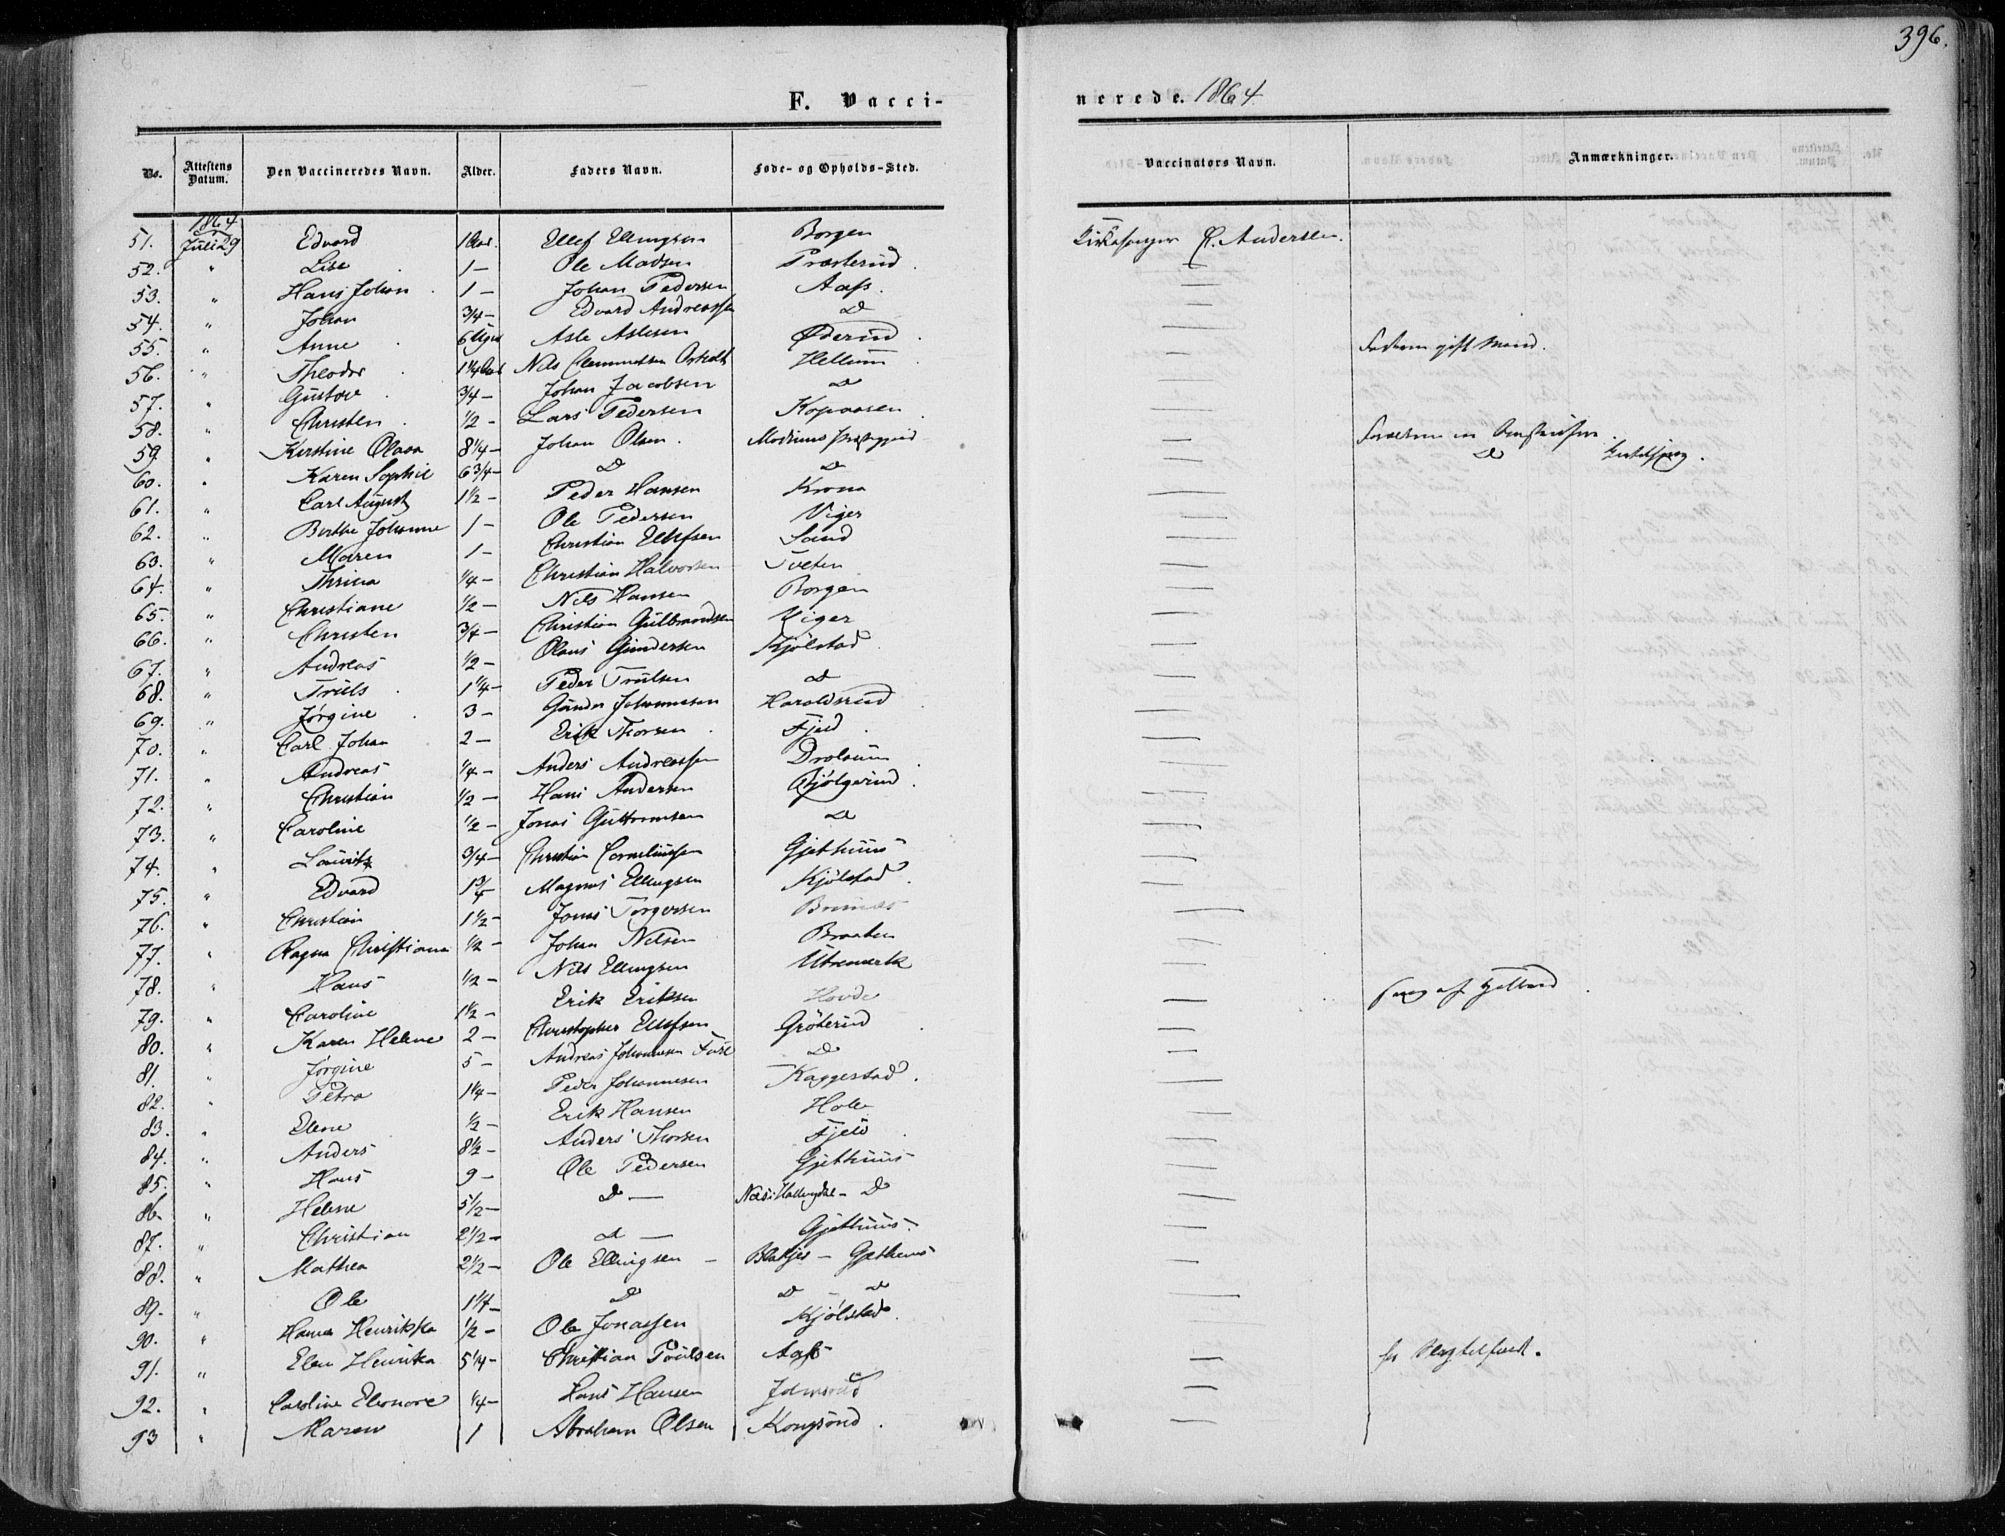 396.
F. Vacci-
nerede. 1864
No. Attestens Datum. Den Vaccineredes Navn. Alder. Faders Navn. Føde- og Opholds-Sted. Vaccinators Navn. Anmærkninger.
1864
51. Juli 29 Edvard 1 Aar. Ellef Ellingsen Borgen Kirkesanger C. Andersen.
52. " Lise 1 — Ole Madsen Præsterud
53. " Hans Johan 1 — Johan Pedersen Aass.
54. " Johan 3/4 — Edvard Andreassen D
55. " Anne 6 Asle Aslesen Øderud
56. " Theodor 1 1/4 Aar Nils Clemmetsen Hellum
57. " Gustav 3/4 — Johan Jacobsen D
58. " Christen 1/2 — Lars Pedersen Kopaasen
59. " Kirstine Olava 8 1/4 — Johan Olsen Modums
60. " Karen Sophie 6 3/4 — D D D
61. " Carl August 1 1/2 — Peder Hansen Krona
62. " Berthe Johanne 1 — Ole Pedersen Viger
63. " Maren 1 — Christian Ellefsen Sand
64. " Thrina 1/4 — Christian Halvorsen Tveten
65. " Christiane 1/2 — Nils Hansen Borgen
66. " Christen 3/4 — Christian Gulbrandsen Viger
67. " Andreas 1/2 — Olaus Gundersen Kjølstad
68. " Truls 1 1/4 — Peder Trulsen D
69. " Jørgine 3 — Gunder Johannesen Haraldsrud
70. " Carl Johan 2 — Erik Thorsen Fjeld
71. " Andreas 1/4 — Anders Andreassen Drolsum
72. " Christian 1/2 — Hans Andersen Bjølgerud
73. " Caroline 1/2 — Jonas Guttormsen D
74. " Lauritz 3/4 — Christian Corneliussen Gjethuus
75. " Edvard 1 3/4 Magnus Ellingsen Kjølstad
76. " Christian 1 1/2 — Jonas Torgersen
77. " Ragna Christiana 1/2 — Johan Nilsen Braaten
78. " Hans 1/2 — Nils Ellingsen
79. " Caroline 1 1/2 — Erik Eriksen Hovde
80. " Karen Helene 2 — Christopher Ellefsen Grøterud
81. " Jørgine 5 — Andreas Johannesen D
82. " Petra 1 1/4 — Peder Johannesen Kaggestad
83. " Elene 1/2 — Erik Hansen Hole
84. " Anders 8 1/2 — Anders Thorsen Fjeld
85. " Hans 9 — Ole Pedersen Gjethuus
86. " Helene 5 1/2 — D — Næs i Hallingdal — D
87. " Christian 2 1/2 — D — Gjethuus
88. " Mathea 2 1/2 — Ole Ellingsen — — Gjethuus
89. " Ole 1 1/4 — D D — D
90. " Hanna Henrikka 1/2 — Ole Jonassen Kjølstad
91. " Elen Henrika 5 1/4 — Christian Poulsen Aass
92. " Caroline Eleonore 1/4 — Hans Hansen
93 " Maren 1 Abraham Olsen Kongsund